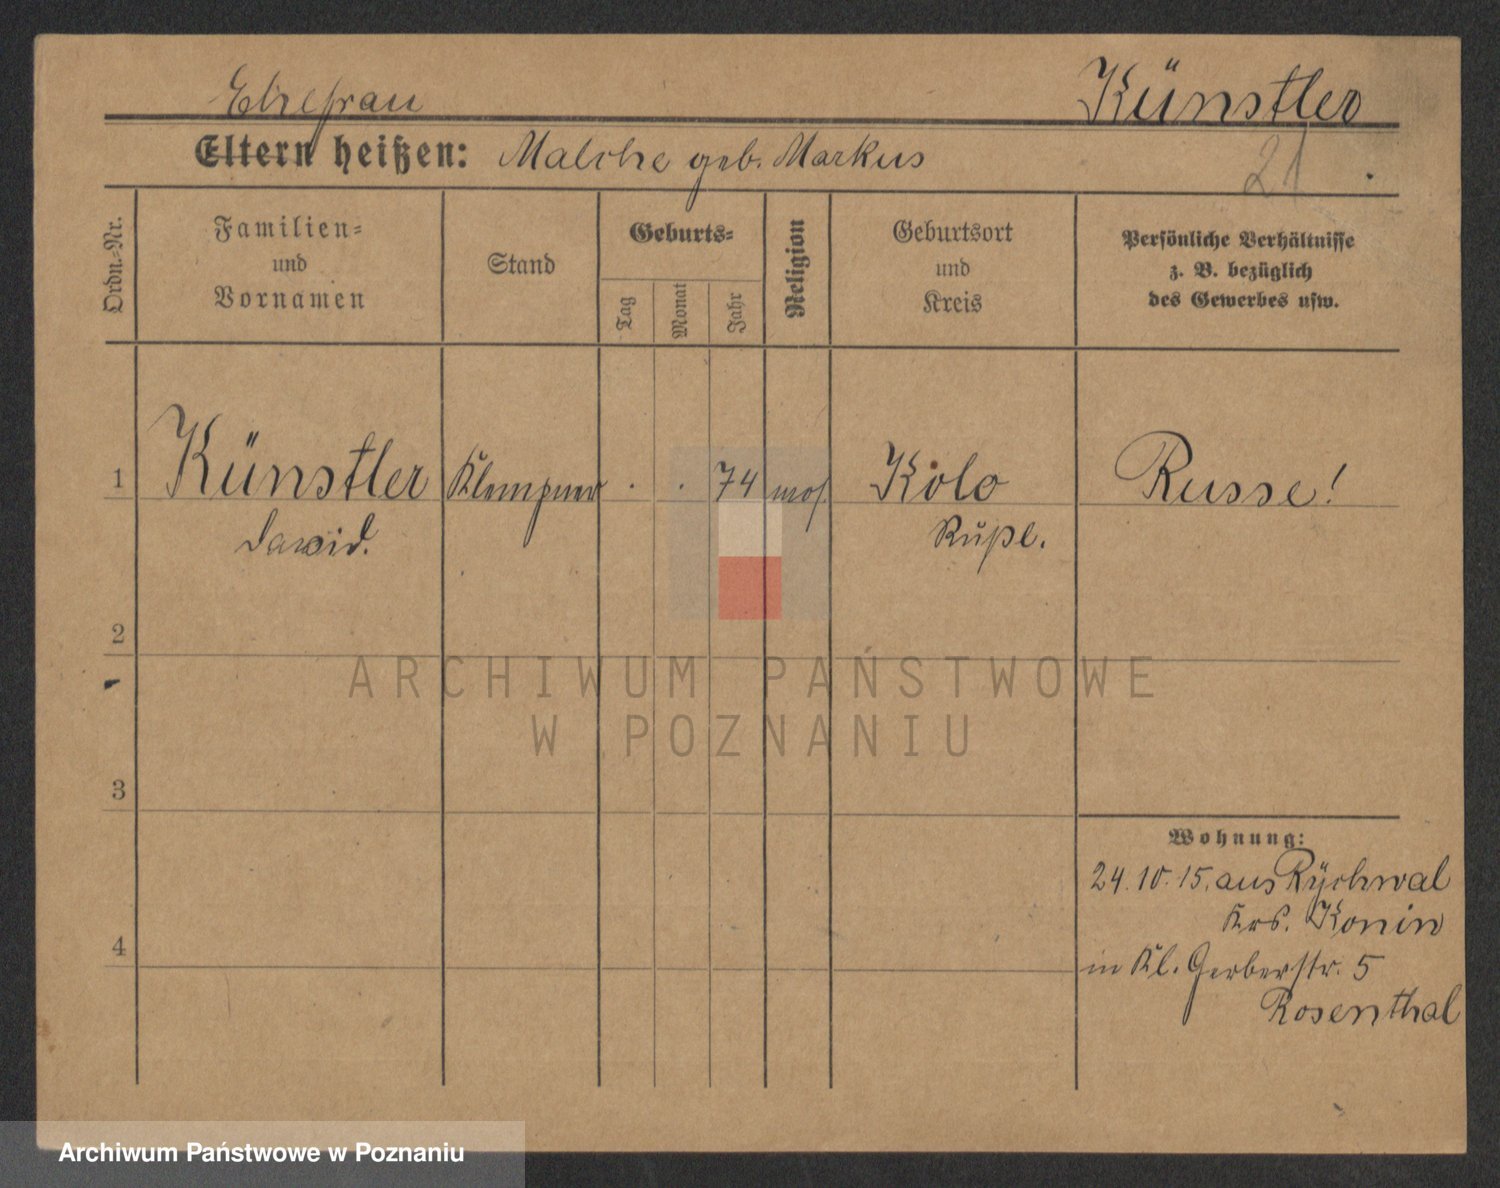 Ehefrau Künstler
Eltern heißen: Malche geb. Markus
21
Ordn.-Nr. Familien- und Vornamen Stand Geburts- Tag Monat Jahr Religion Geburtsort und Kreis Persönliche Verhältnisse z. B. bezüglich des Gewerbes usw.
1 Künstler Klempner . . 74 mos. Kolo Russe!
David. Rußl.
2
ARCHIWUM PAŃSTWOWE
W POZNANIU
3
Wohnung:
24.10.15. aus Rychwal
Krs. Konin
4
in Kl. Gerberstr. 5
Rosenthal
Archiwum Państwowe w Poznaniu